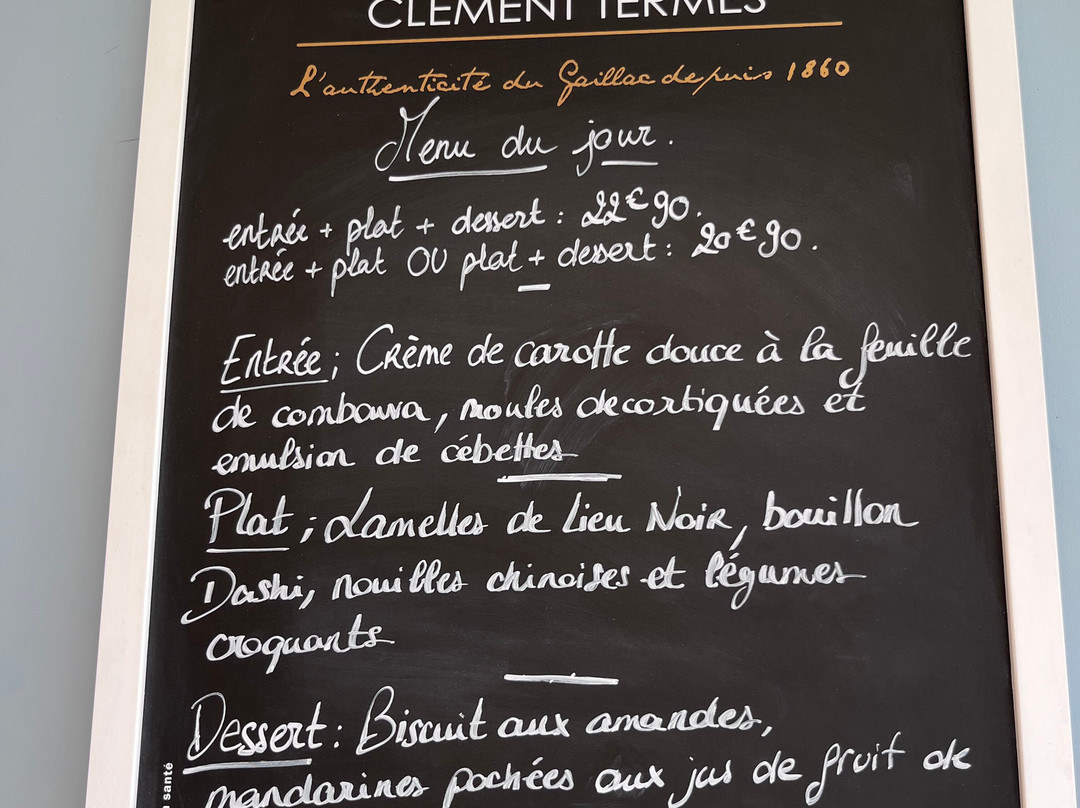 CLÉMENT TERMES
L'authenticité du Gaillac depuis 1860
Menu du jour.
entrée + plat + dessert : 22€90.
entrée + plat OU plat + dessert : 20€90.
Entrée ; Crème de carotte douce à la feuille
de combawa, moules decortiquées et
emulsion de cébettes
Plat ; Lamelles de Lieu Noir, bouillon
Dashi, nouilles chinoises et légumes
croquants
Dessert : Biscuit aux amandes,
mandarines pochées aux jus de fruit de
santé